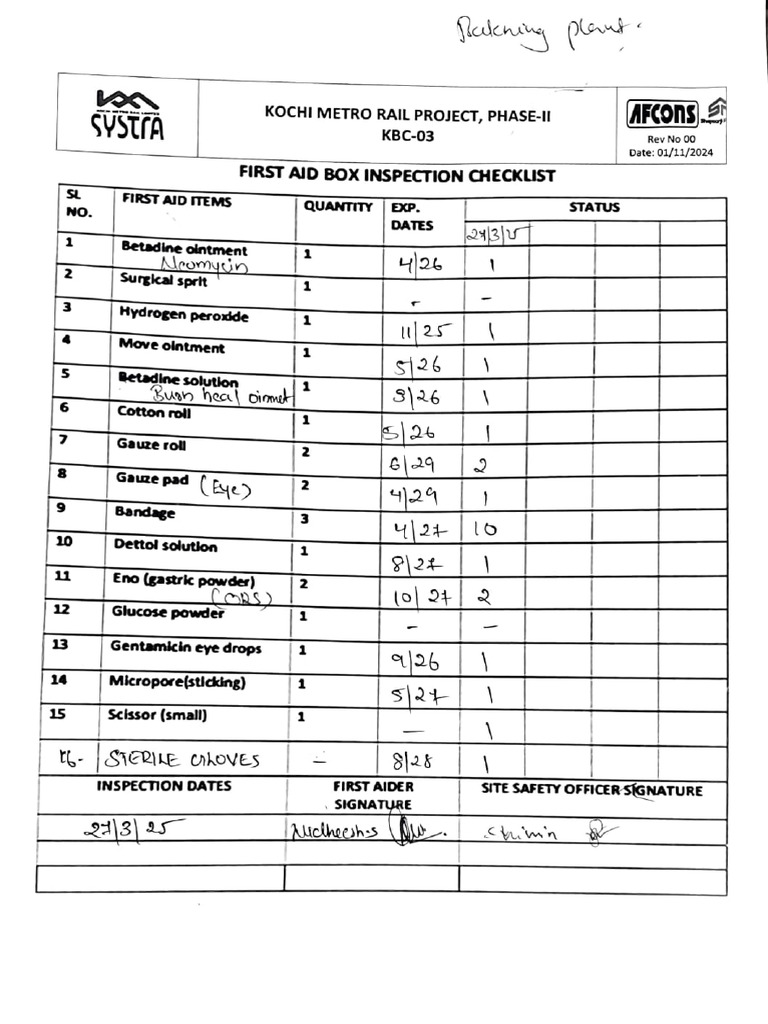 Batching plant.
KOCHI METRO RAIL LIMITED
SYSTRA
KOCHI METRO RAIL PROJECT, PHASE-II
KBC-03
AFCONS
Rev No 00
Date: 01/11/2024
FIRST AID BOX INSPECTION CHECKLIST
SL NO. FIRST AID ITEMS QUANTITY EXP. DATES STATUS
27/3/25
1 Betadine ointment 1 4/26 1
Neomycin
2 Surgical sprit 1 - -
3 Hydrogen peroxide 1 11/25 1
4 Move ointment 1 5/26 1
5 Betadine solution 1 3/26 1
Burn heal oinmet
6 Cotton roll 1 5/26 1
7 Gauze roll 2 6/29 2
8 Gauze pad (Eye) 2 4/29 1
9 Bandage 3 4/27 10
10 Dettol solution 1 8/27 1
11 Eno (gastric powder) 2 10/27 2
(ORS)
12 Glucose powder 1 - -
13 Gentamicin eye drops 1 9/26 1
14 Micropore(sticking) 1 5/27 1
15 Scissor (small) 1 — 1
16- STERILE GLOVES - 8/28 1
INSPECTION DATES FIRST AIDER SIGNATURE SITE SAFETY OFFICER SIGNATURE
27/3/25 Nidheesh.s